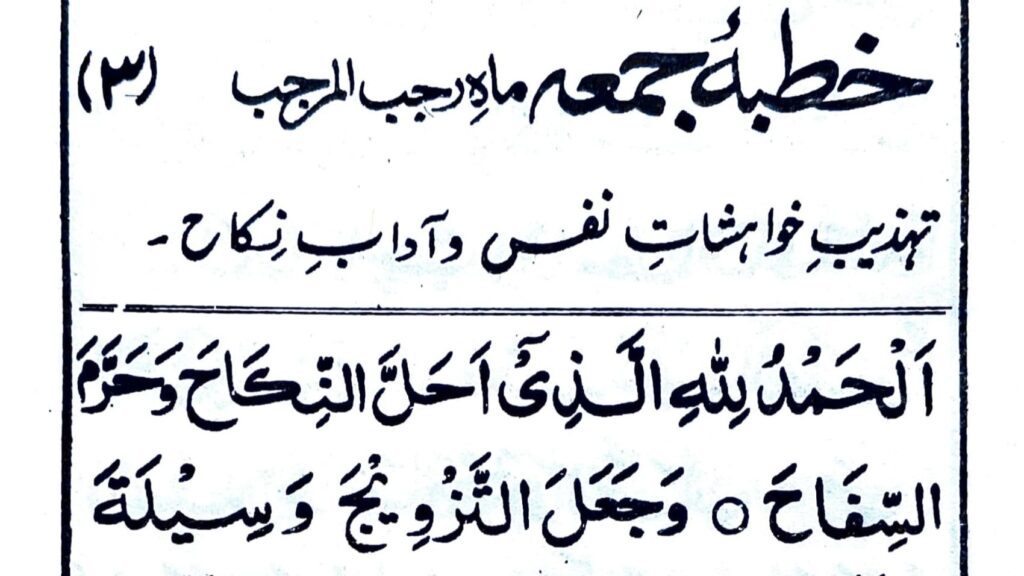 خطبۂ جمعہ ماہِ رجب المرجب (۳)
تہذیبِ خواہشاتِ نفس وآدابِ نِکاح۔
اَلْحَمْدُ لِلّٰہِ الَّذِیْٓ اَحَلَّ النِّکَاحَ وَحَرَّمَ
السِّفَاحَ ○ وَجَعَلَ التَّزْوِیْجَ وَسِیْلَةَ